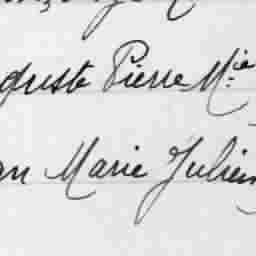 guste Pierre Mie
an Marie Julien